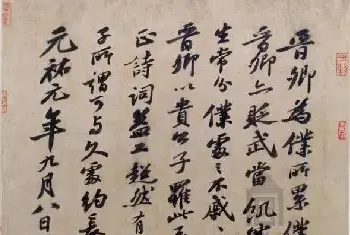 晉卿為僕所累僕
晉卿亦貶武當飢
生常分僕處之不戚、
晉卿以貴公子罹此
正詩詞益工超然有
子所謂可與久處約長
元祐元年九月八日